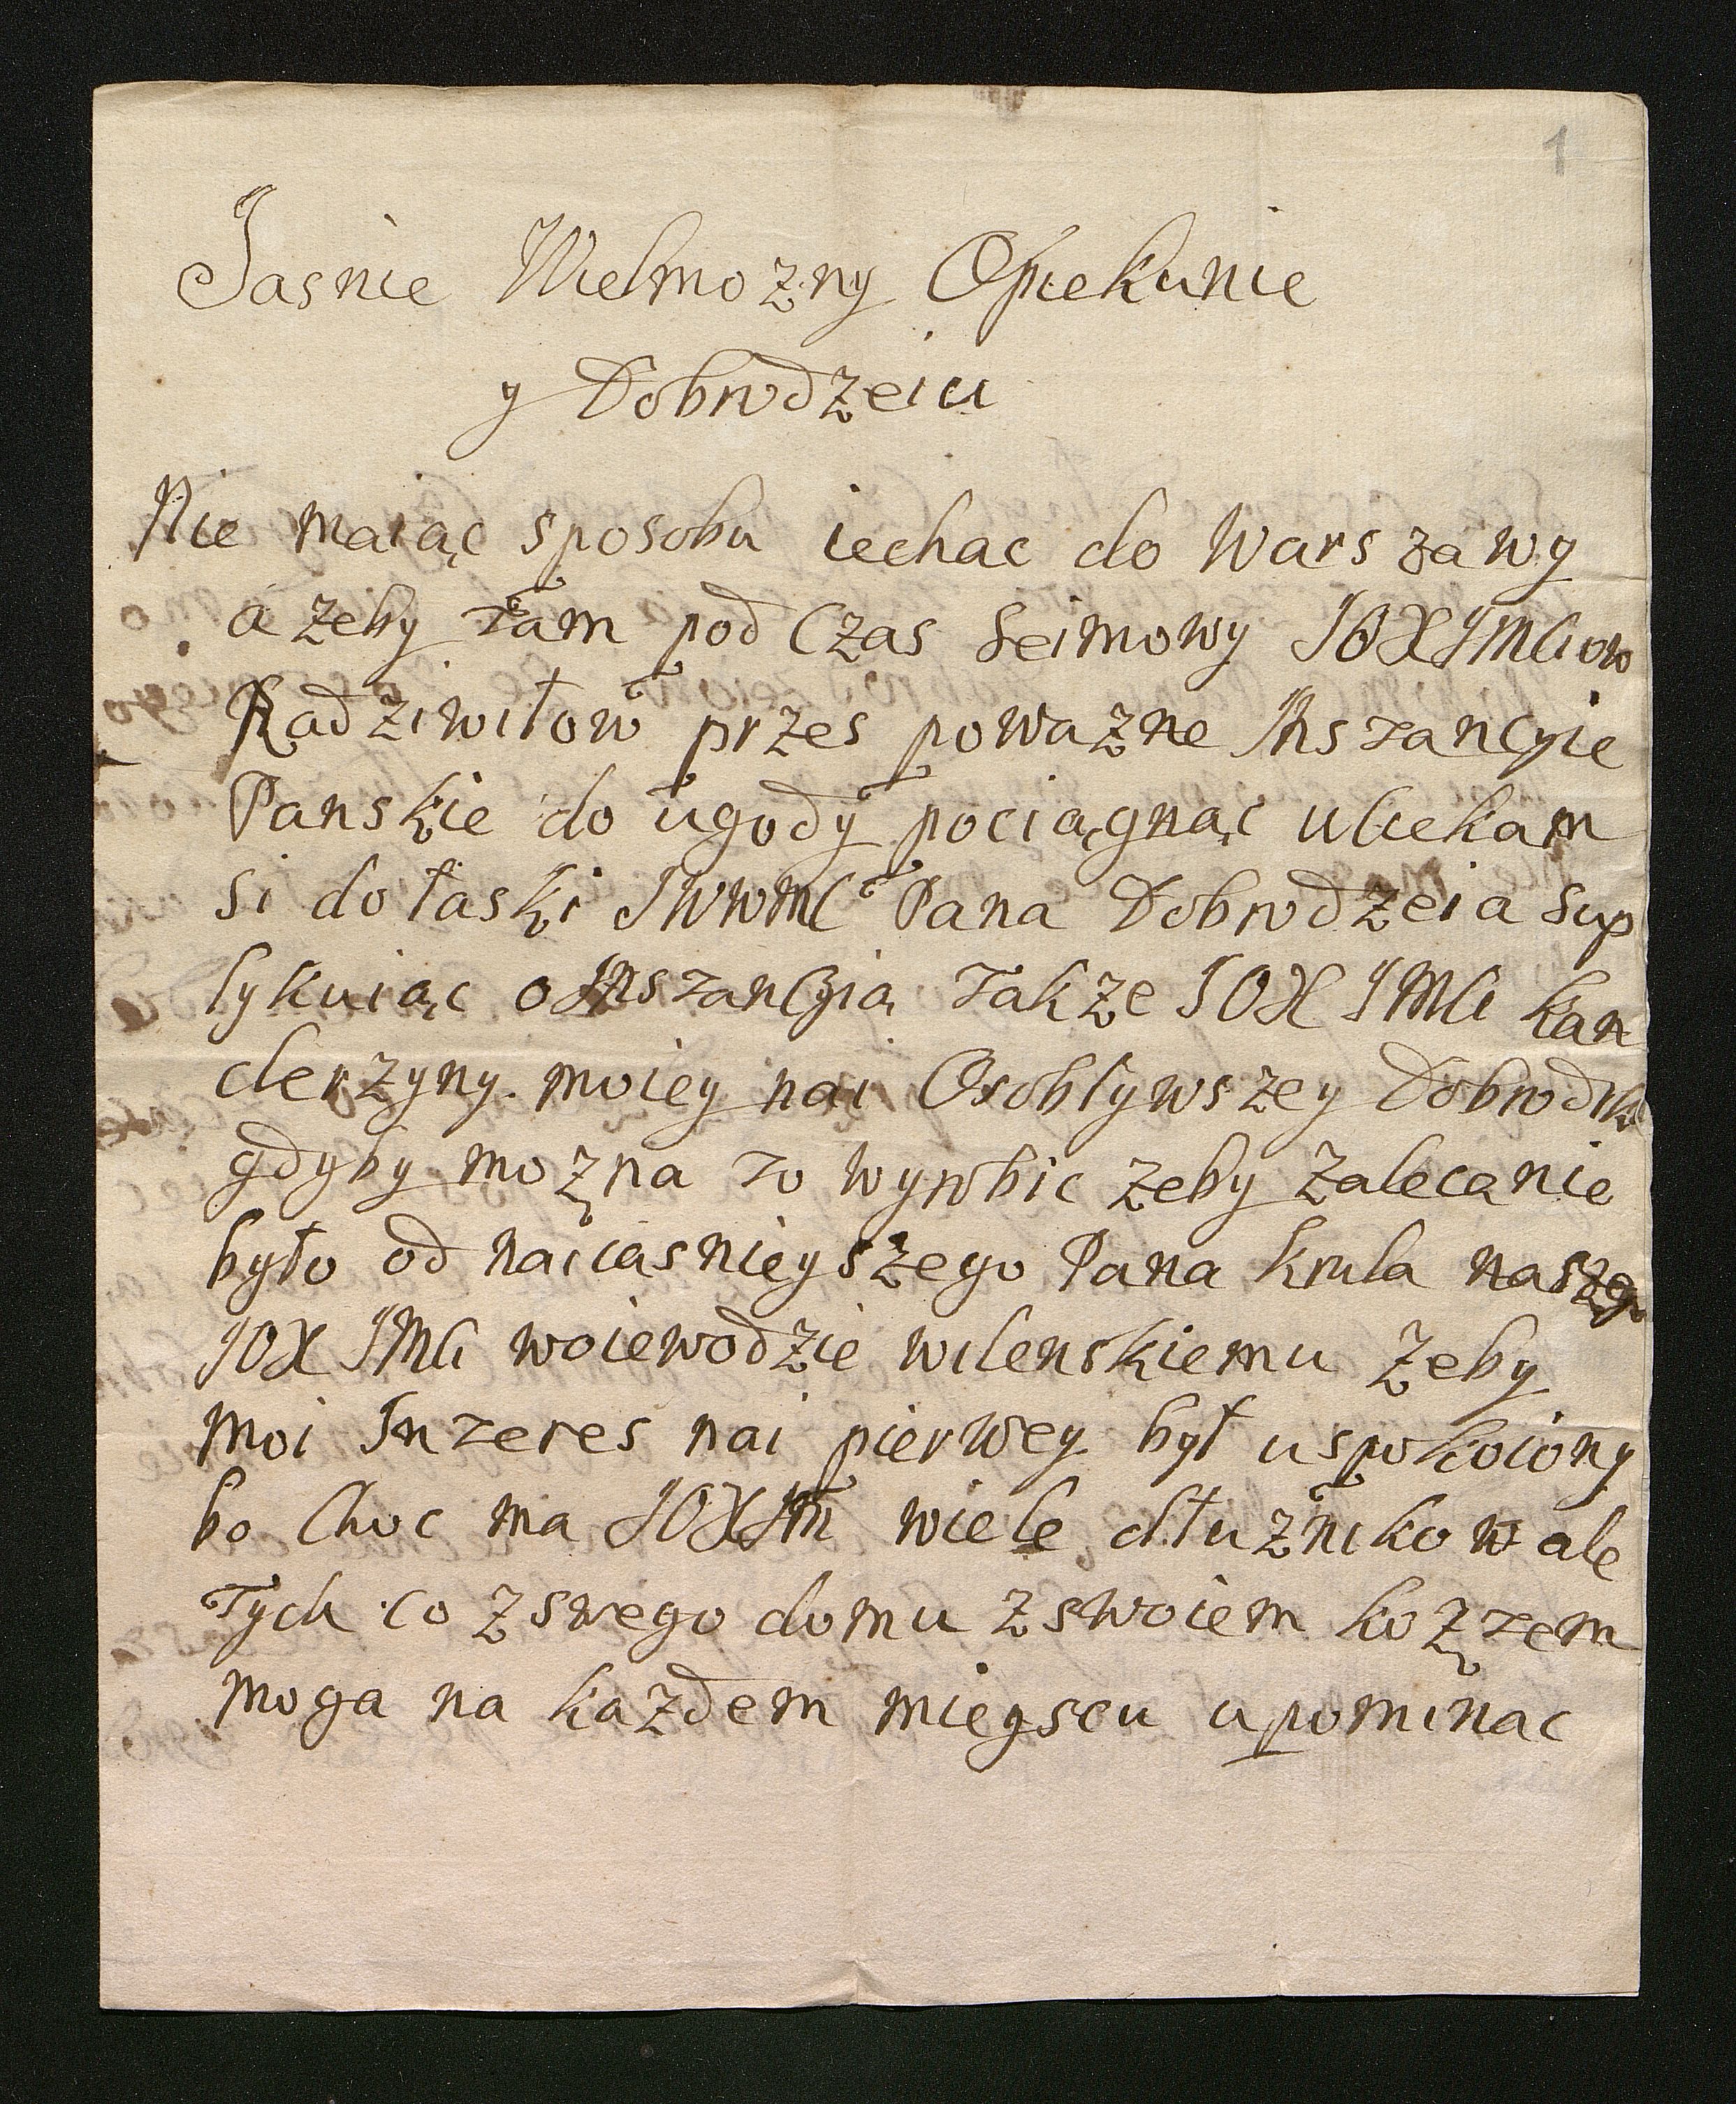 1
Jasnie Wielmozny Opiekunie
y Dobrodzeiu
Nie maiąc sposobu iechac do Warszawy
a zeby tam pod Czas Seimowy JOXJMCiow
Radziwiłow przes powazne Jnstancyie
Panskie do ugody pociągnąc uciekam
si do łaski JWWMC Pana Dobrodzeia sup
lykuiąc o Jnstancyią takze JOX JMCi kan
clerzyny moiey nai Osoblywszey Dobrodki
gdyby mozna to wyrobic zeby zalecanie
było od naiiasnieyszego Pana krula naszego
JOX JMCi woiewodzie wilenskiemu zeby
moi Jnteres nai pierwey był uspokoiony
bo Choc ma JOXJM wiele dłuznikow ale
Tych co z swego domu z swoiem kosztem
moga na kazdem mieyscu upominac